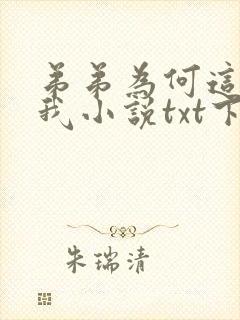 弟弟為何這
我小說txt下
朱瑞清